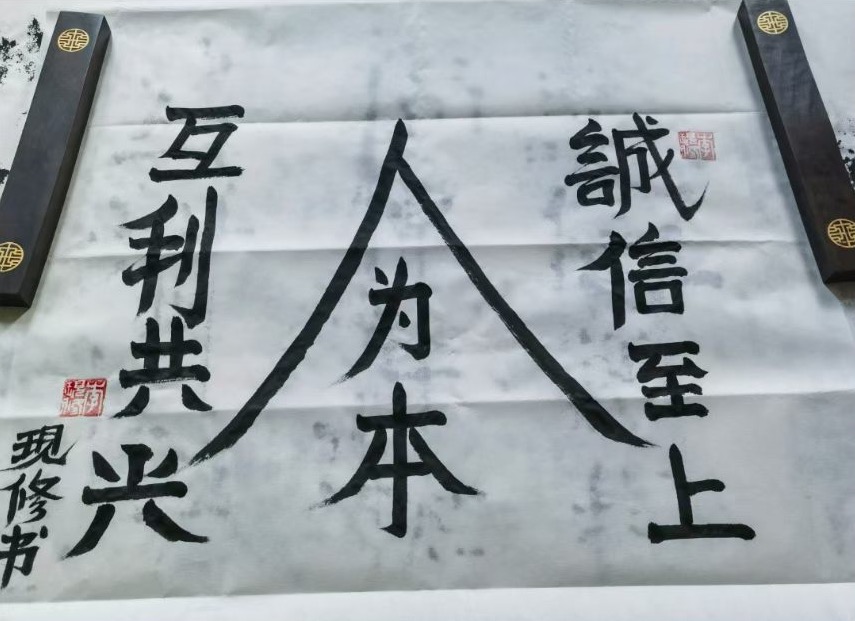 誠信至上
人为本
互利共兴
现修书